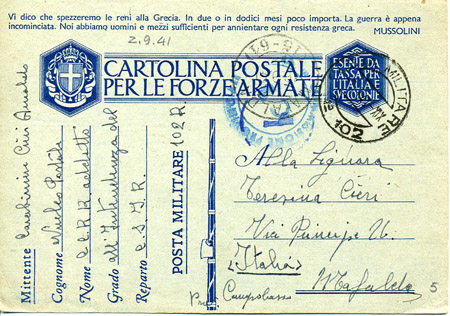 Vi dico che spezzeremo le reni alla Grecia. In due o in dodici mesi poco importa. La guerra è appena
incominciata. Noi abbiamo uomini e mezzi sufficienti per annientare ogni resistenza greca.
MUSSOLINI
2.9.41
CARTOLINA POSTALE
PER LE FORZE ARMATE
ESENTE DA
TASSA PER
L'ITALIA E
SVE COLONIE
MILITARE
102
Mittente Carabiniere Arnaldo
Cognome Nucleo Postale
Nome CC.RR. addetto
Grado all'Intendenza del
Reparto C.S.I.R.
POSTA MILITARE 102 R.
Alla Signora
Teresina Cieri
Via Principe U.
Italia
Mafalda
Campobasso
5